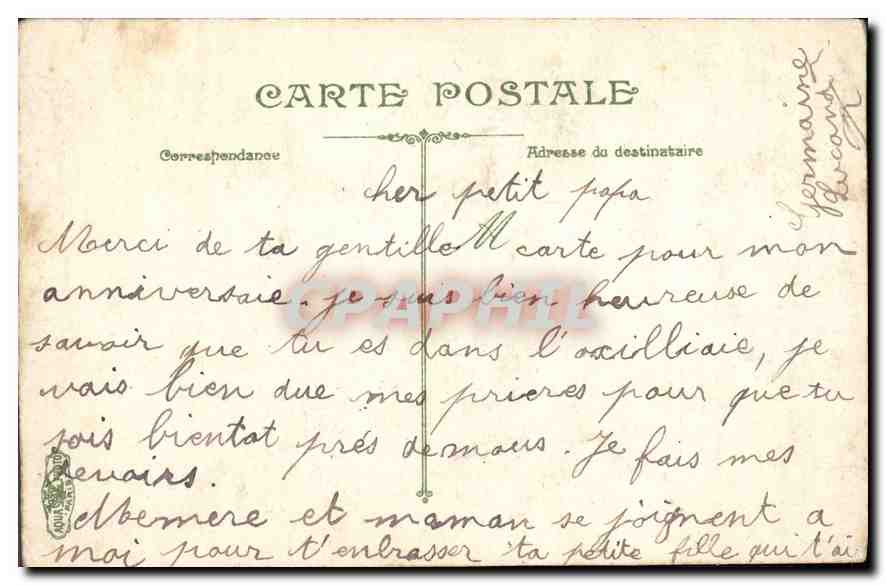 CARTE POSTALE
Correspondance
Adresse du destinataire
Germaine
cher petit papa
Merci de ta gentille carte pour mon
anniversaie. je suis bien heureuse de
savoir que tu es dans l'oxilliaie, je
vais bien due mes prieres pour que tu
sois bientot prés de mous. Je fais mes
devoirs.
Memere et maman se joignent a
moi pour t'enbrasser ta petite fille qui t'ai
CPAPHIL
AQUA PHOTO
PARIS